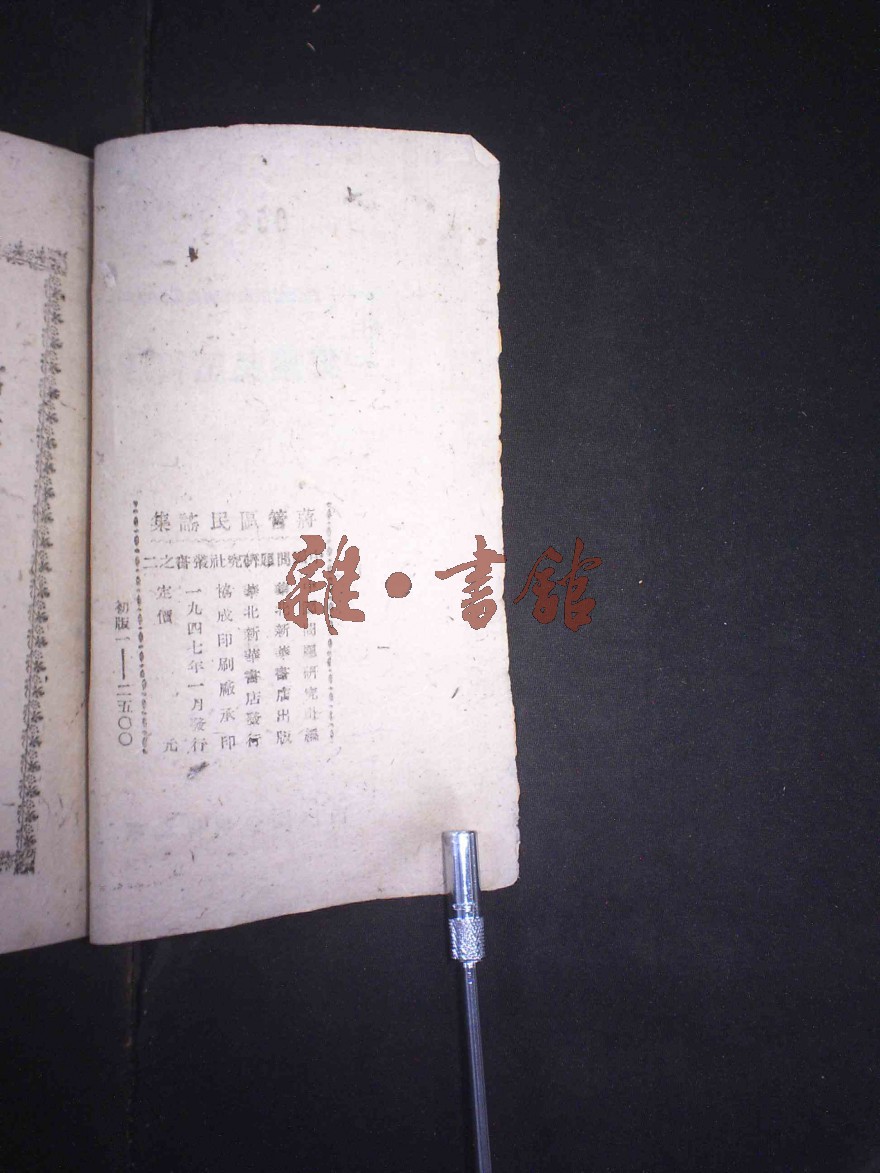 蔣管區民謠集
問題研究社叢書之二
問題研究社編
新華書店出版
華北新華書店發行
協成印刷廠承印
一九四七年一月發行
定價 元
初版一——二五〇〇
雜·書館